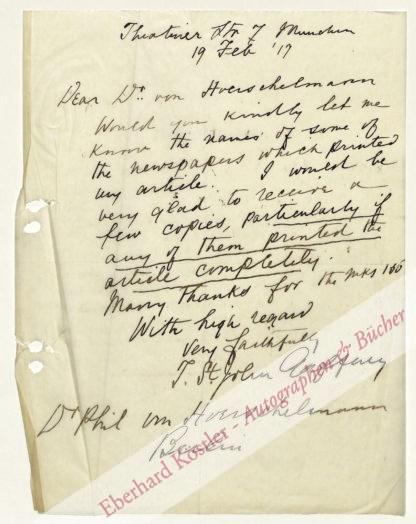 Theatiner Str 7 Munchen
19 Feb '17
Dear Dr. von Hoerschelmann
Would you kindly let me
know the names of some of
the newspapers which printed
my article. I would be
very glad to receive a
few copies, particularly if
any of them printed the
article completely.
Many thanks for the mks 100
With high regard
Very faithfully
T. St John Gaffney
Dr Phil von Hoerschelmann
Berlin
Eberhard Köstler - Autographen & Bücher